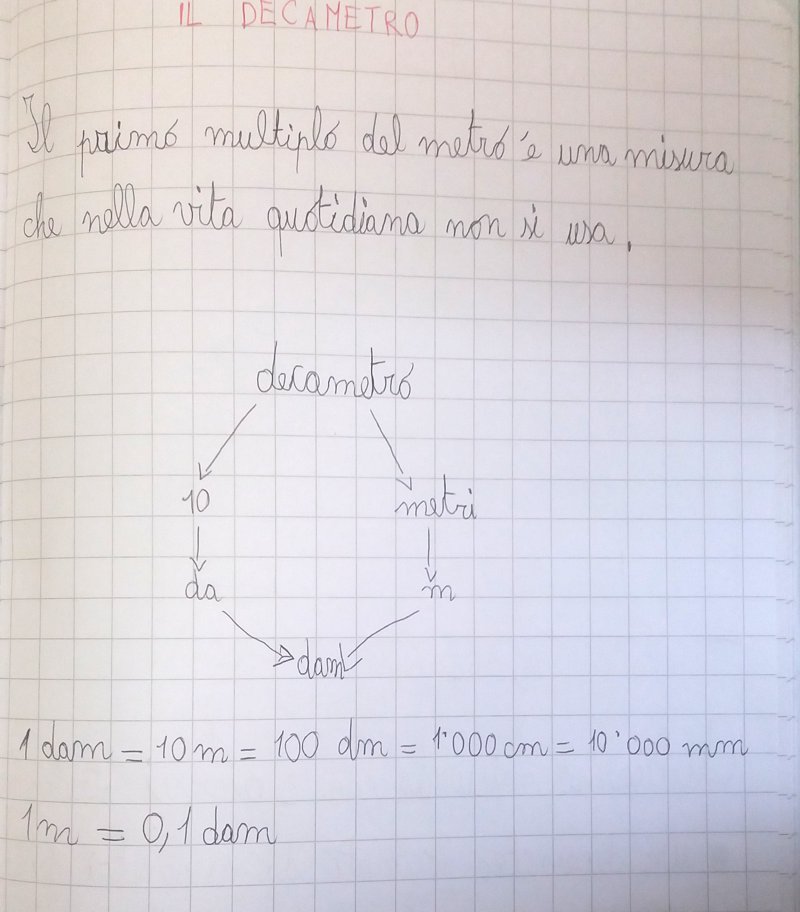 IL DECAMETRO
Il primo multiplo del metro è una misura
che nella vita quotidiana non si usa.
decametro
10 metri
da m
dam
1 dam = 10 m = 100 dm = 1'000 cm = 10'000 mm
1m = 0,1 dam